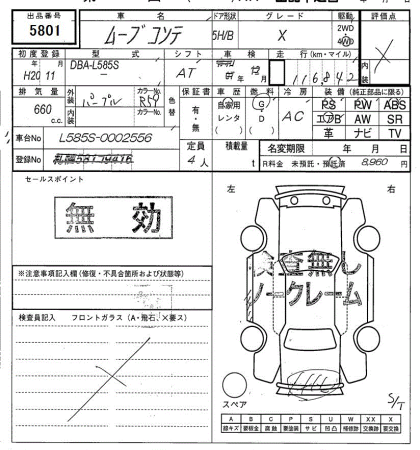 出品番号 車名 ドア形状 グレード 駆動 評価点
5801 ムーブコンテ 5H/B X 2WD 4WD
初度登録 型式 シフト 車検 走行(km・マイル) 内装
H20年11月 DBA-L585S AT 12月 116842
排気量 外装色 カラーNo. 色替 保証書 車歴 燃料 冷房 装備(純正品に限る)
660c.c. パープル R59 有・無 自家用 レンタ ( ) G D ( ) AC PS PW ABS
内装色 エアB AW SR
革 ナビ TV
車台No L585S-0002556 定員 積載量 名変期限 年 月 日
登録No 4人 t R料金 未預託・預託済 8,960円
セールスポイント 左 右
無効
検査無し
ノークレーム
※注意事項記入欄(修復・不具合箇所および状態等)
検査員記入 フロントガラス(A・飛石、X要ス)
スペア
S/T
A B C P S U W X XX
線キズ 要板金 腐食 要塗装 サビ 凹凸 補修跡 交換 要交換